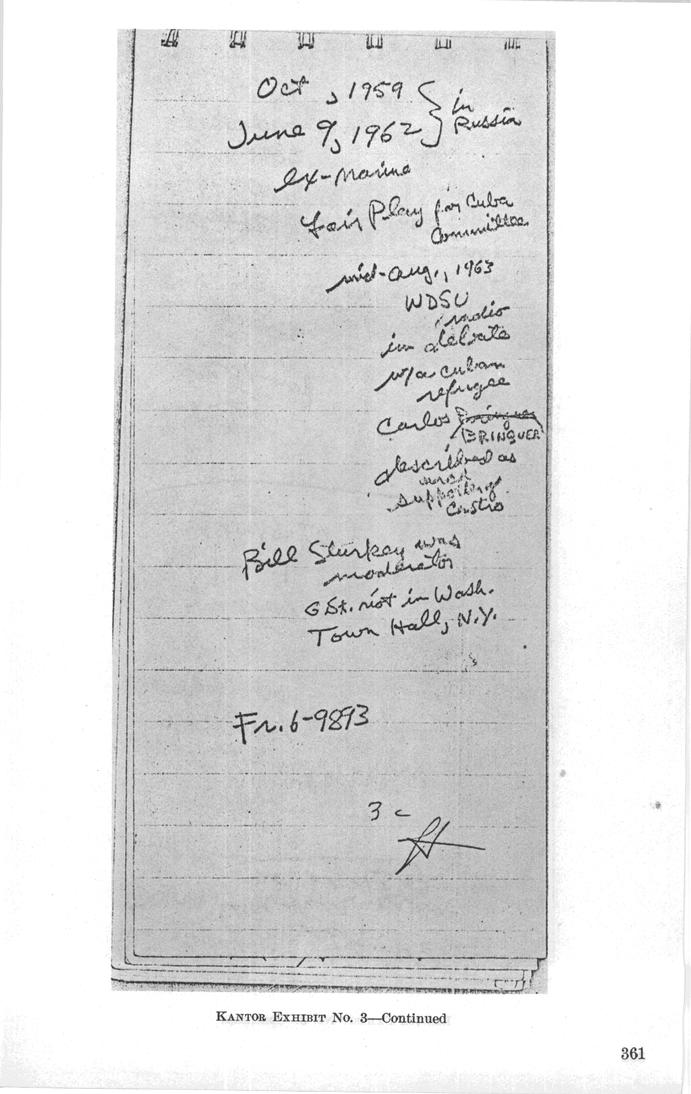 Oct , 1959
June 9, 1962 } in Russia
ex-Marine
Fair Play for Cuba
Committee
mid-Aug., 1963
WDSU
radio
in debate
w/a Cuban
refugee
Carlos Bringuer
BRINGUER
described as
supporting
Castro
Bill Sturkey was
moderator
G St. riot in Wash.
Town Hall, N.Y.
Fr. 6-9893
3 c
KANTOR EXHIBIT No. 3—Continued
361